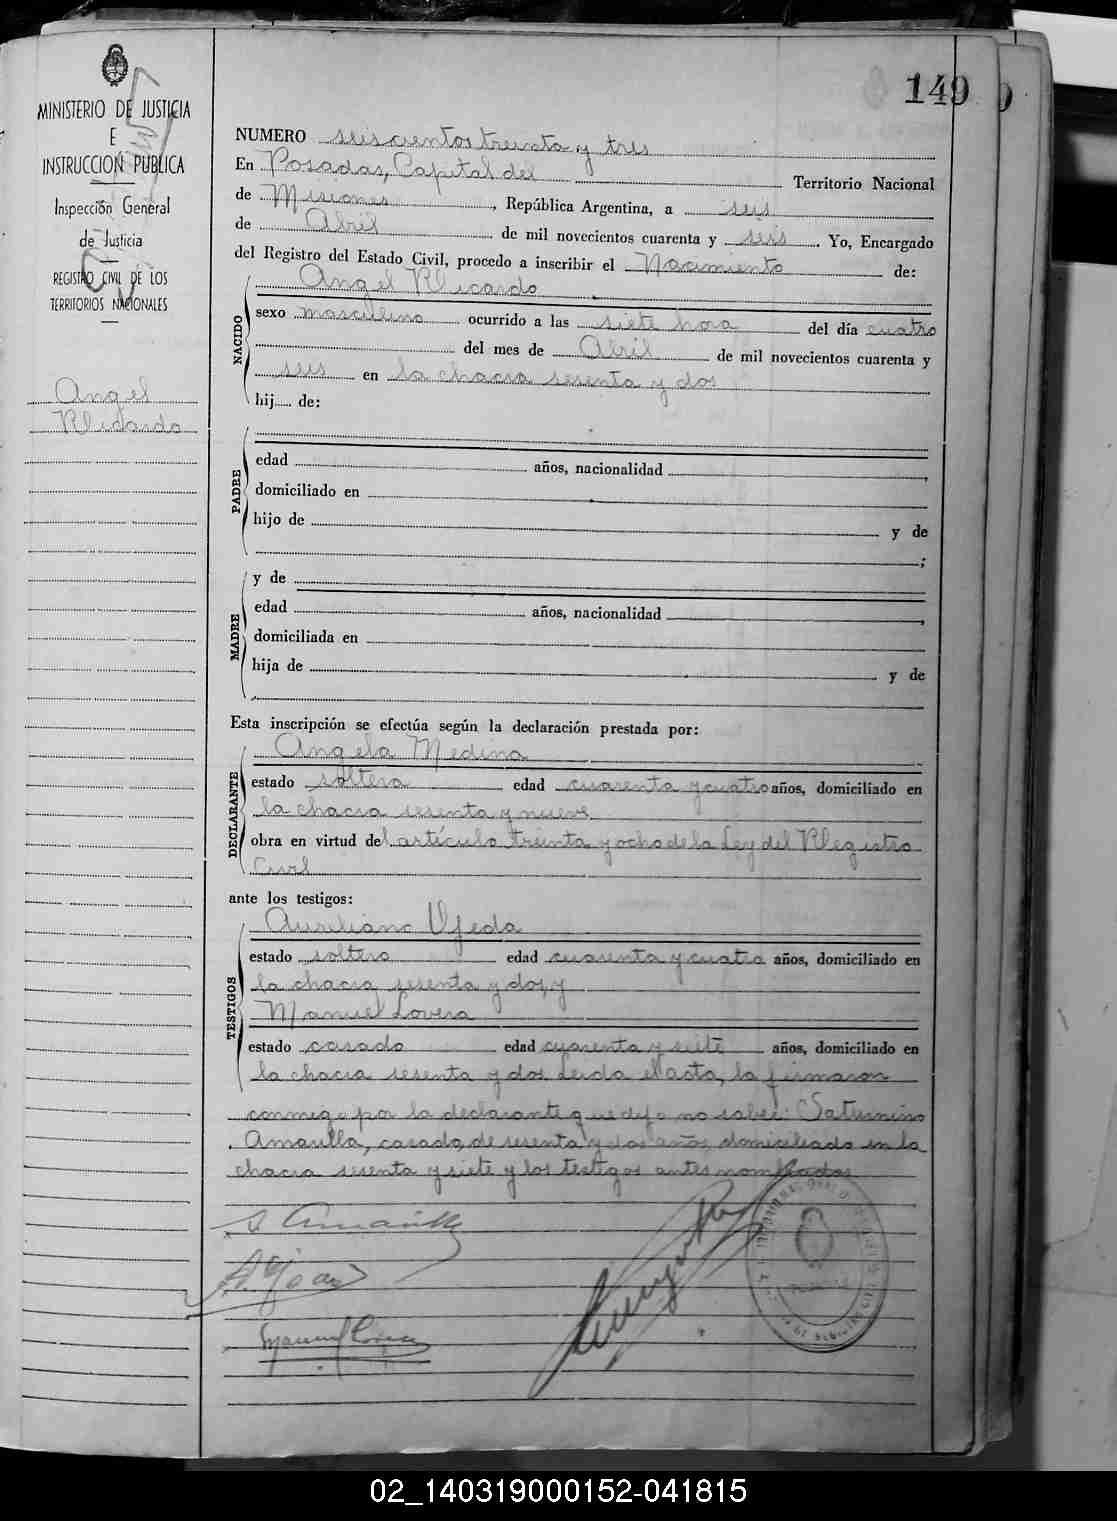 149
MINISTERIO DE JUSTICIA
E
INSTRUCCIÓN PUBLICA
Inspección General
de Justicia
REGISTRO CIVIL DE LOS
TERRITORIOS NACIONALES
Angel
Ricardo
NUMERO seiscientos treinta y tres
En Posadas, Capital del Territorio Nacional
de Misiones, República Argentina, a seis
de Abril de mil novecientos cuarenta y seis. Yo, Encargado
del Registro del Estado Civil, procedo a inscribir el Nacimiento de:
Angel Ricardo
NACIDO
sexo masculino ocurrido a las siete hora del día cuatro
del mes de Abril de mil novecientos cuarenta y
seis en la chacra sesenta y dos
hij de:
PADRE
edad años, nacionalidad
domiciliado en
hijo de y de
;
MADRE
y de
edad años, nacionalidad
domiciliada en
hija de y de
Esta inscripción se efectúa según la declaración prestada por:
Angela Medina
DECLARANTE
estado soltera edad cuarenta y cuatro años, domiciliado en
la chacra sesenta y nueve
obra en virtud del artículo treinta y ocho de la Ley del Registro
Civil
ante los testigos:
Aureliano Ojeda
TESTIGOS
estado soltero edad cuarenta y cuatro años, domiciliado en
la chacra sesenta y dos, y
Manuel Lovera
estado casado edad cuarenta y siete años, domiciliado en
la chacra sesenta y dos. Leida el acta, la firmaron
conmigo por la declarante que dijo no saber: Saturnino
Amarilla, casado, de sesenta y dos años, domiciliado en la
chacra sesenta y siete y los testigos antes nombrados
S Amarilla
A. Ojeda
Manuel Lovera
02_140319000152-041815